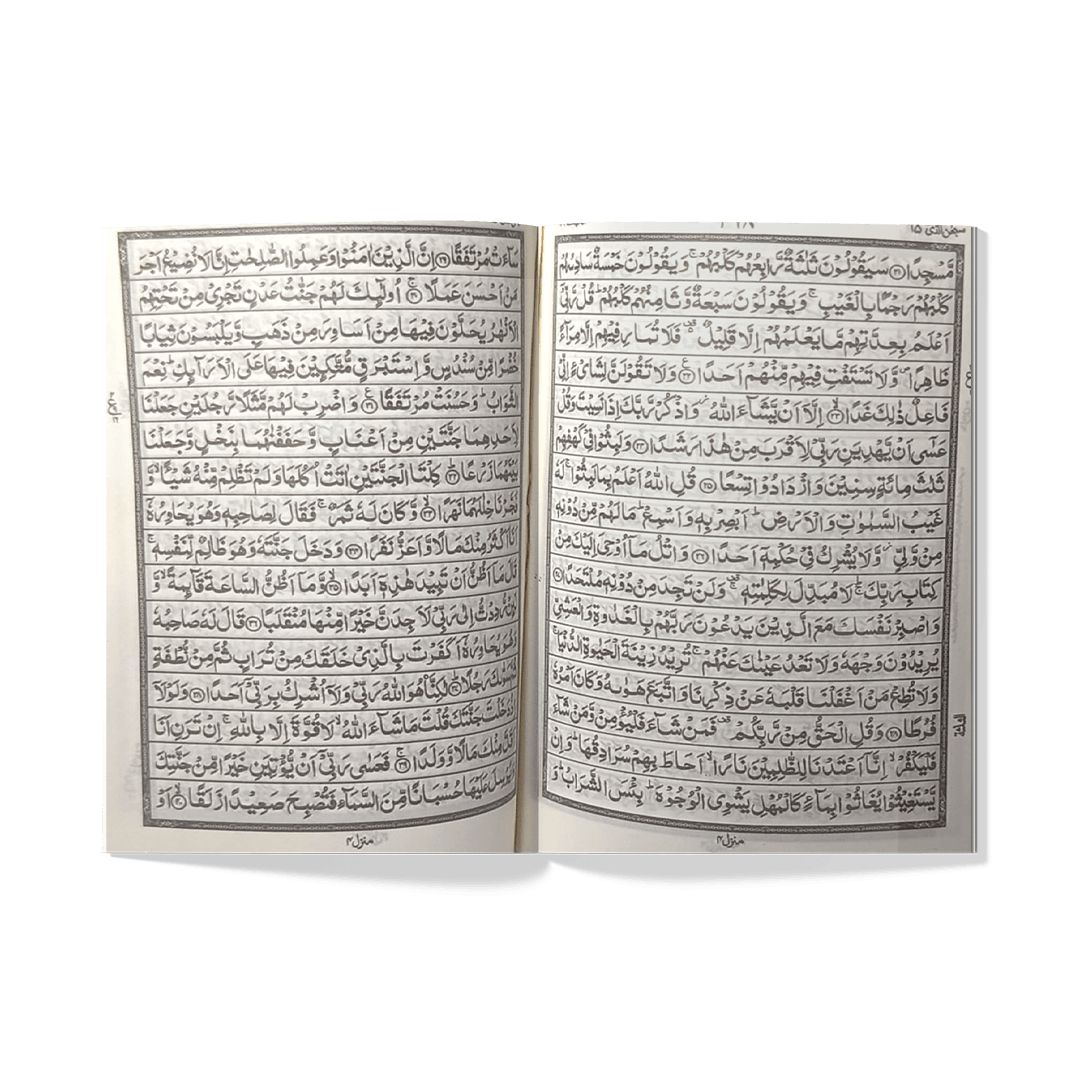 سبحن الذی ۱۵
مَّسْجِدًا ﴿۲۱﴾ سَيَقُوْلُوْنَ ثَلٰثَةٌ رَّابِعُهُمْ كَلْبُهُمْ ۚ وَيَقُوْلُوْنَ خَمْسَةٌ سَادِسُهُمْ
كَلْبُهُمْ رَجْمًۢا بِالْغَيْبِ ۚ وَيَقُوْلُوْنَ سَبْعَةٌ وَّثَامِنُهُمْ كَلْبُهُمْ ؕ قُلْ رَّبِّىْۤ
اَعْلَمُ بِعِدَّتِهِمْ مَّا يَعْلَمُهُمْ اِلَّا قَلِيْلٌ ۫ فَلَا تُمَارِ فِيْهِمْ اِلَّا مِرَآءً
ظَاهِرًا ۪ وَّلَا تَسْتَفْتِ فِيْهِمْ مِّنْهُمْ اَحَدًا ﴿۲۲﴾ وَلَا تَقُوْلَنَّ لِشَاىْءٍ اِنِّىْ
فَاعِلٌ ذٰلِكَ غَدًا ﴿۲۳﴾ اِلَّاۤ اَنْ يَّشَآءَ اللّٰهُ ۫ وَاذْكُرْ رَّبَّكَ اِذَا نَسِيْتَ وَقُلْ
عَسٰۤى اَنْ يَّهْدِيَنِ رَبِّىْ لِاَقْرَبَ مِنْ هٰذَا رَشَدًا ﴿۲۴﴾ وَلَبِثُوْا فِىْ كَهْفِهِمْ
ثَلٰثَ مِائَةٍ سِنِيْنَ وَازْدَادُوْا تِسْعًا ﴿۲۵﴾ قُلِ اللّٰهُ اَعْلَمُ بِمَا لَبِثُوْا ۚ لَهٗ
غَيْبُ السَّمٰوٰتِ وَالْاَرْضِ ؕ اَبْصِرْ بِهٖ وَاَسْمِعْ ؕ مَا لَهُمْ مِّنْ دُوْنِهٖ
مِنْ وَّلِىٍّ ۫ وَّلَا يُشْرِكُ فِىْ حُكْمِهٖۤ اَحَدًا ﴿۲۶﴾ وَاتْلُ مَاۤ اُوْحِىَ اِلَيْكَ مِنْ
كِتَابِ رَبِّكَ ؕ لَا مُبَدِّلَ لِكَلِمٰتِهٖ ۫ وَلَنْ تَجِدَ مِنْ دُوْنِهٖ مُلْتَحَدًا ﴿۲۷﴾
وَاصْبِرْ نَفْسَكَ مَعَ الَّذِيْنَ يَدْعُوْنَ رَبَّهُمْ بِالْغَدٰوةِ وَالْعَشِىِّ
يُرِيْدُوْنَ وَجْهَهٗ وَلَا تَعْدُ عَيْنٰكَ عَنْهُمْ ۚ تُرِيْدُ زِيْنَةَ الْحَيٰوةِ الدُّنْيَا ۚ
وَلَا تُطِعْ مَنْ اَغْفَلْنَا قَلْبَهٗ عَنْ ذِكْرِنَا وَاتَّبَعَ هَوٰىهُ وَكَانَ اَمْرُهٗ
فُرُطًا ﴿۲۸﴾ وَقُلِ الْحَقُّ مِنْ رَّبِّكُمْ ۫ فَمَنْ شَآءَ فَلْيُؤْمِنْ وَّمَنْ شَآءَ
فَلْيَكْفُرْ ۙ اِنَّاۤ اَعْتَدْنَا لِلظّٰلِمِيْنَ نَارًا ۙ اَحَاطَ بِهِمْ سُرَادِقُهَا ؕ وَاِنْ
يَّسْتَغِيْثُوْا يُغَاثُوْا بِمَآءٍ كَالْمُهْلِ يَشْوِى الْوُجُوْهَ ؕ بِئْسَ الشَّرَابُ ؕ وَ
منزل ۴
سَآءَتْ مُرْتَفَقًا ﴿۲۹﴾ اِنَّ الَّذِيْنَ اٰمَنُوْا وَعَمِلُوا الصّٰلِحٰتِ اِنَّا لَا نُضِيْعُ اَجْرَ
مَنْ اَحْسَنَ عَمَلًا ﴿۳۰﴾ اُولٰٓئِكَ لَهُمْ جَنّٰتُ عَدْنٍ تَجْرِىْ مِنْ تَحْتِهِمُ
الْاَنْهٰرُ يُحَلَّوْنَ فِيْهَا مِنْ اَسَاوِرَ مِنْ ذَهَبٍ وَّيَلْبَسُوْنَ ثِيَابًا
خُضْرًا مِّنْ سُنْدُسٍ وَّاِسْتَبْرَقٍ مُّتَّكِئِيْنَ فِيْهَا عَلَى الْاَرَآئِكِ ؕ نِعْمَ
الثَّوَابُ ؕ وَحَسُنَتْ مُرْتَفَقًا ﴿۳۱﴾ وَاضْرِبْ لَهُمْ مَّثَلًا رَّجُلَيْنِ جَعَلْنَا
لِاَحَدِهِمَا جَنَّتَيْنِ مِنْ اَعْنَابٍ وَّحَفَفْنٰهُمَا بِنَخْلٍ وَّجَعَلْنَا
بَيْنَهُمَا زَرْعًا ﴿۳۲﴾ كِلْتَا الْجَنَّتَيْنِ اٰتَتْ اُكُلَهَا وَلَمْ تَظْلِمْ مِّنْهُ شَيْـًٔا ۙ وَّ
فَجَّرْنَا خِلٰلَهُمَا نَهَرًا ﴿۳۳﴾ وَّكَانَ لَهٗ ثَمَرٌ ۚ فَقَالَ لِصَاحِبِهٖ وَهُوَ يُحَاوِرُهٗۤ
اَنَا اَكْثَرُ مِنْكَ مَالًا وَّاَعَزُّ نَفَرًا ﴿۳۴﴾ وَدَخَلَ جَنَّتَهٗ وَهُوَ ظَالِمٌ لِّنَفْسِهٖ ۚ
قَالَ مَاۤ اَظُنُّ اَنْ تَبِيْدَ هٰذِهٖۤ اَبَدًا ﴿۳۵﴾ وَّمَاۤ اَظُنُّ السَّاعَةَ قَآئِمَةً ۙ وَّ
لَئِنْ رُّدِدْتُّ اِلٰى رَبِّىْ لَاَجِدَنَّ خَيْرًا مِّنْهَا مُنْقَلَبًا ﴿۳۶﴾ قَالَ لَهٗ صَاحِبُهٗ
وَهُوَ يُحَاوِرُهٗۤ اَكَفَرْتَ بِالَّذِىْ خَلَقَكَ مِنْ تُرَابٍ ثُمَّ مِنْ نُّطْفَةٍ
ثُمَّ سَوّٰىكَ رَجُلًا ﴿۳۷﴾ لٰكِنَّا۠ هُوَ اللّٰهُ رَبِّىْ وَلَاۤ اُشْرِكُ بِرَبِّىْۤ اَحَدًا ﴿۳۸﴾ وَلَوْلَاۤ
اِذْ دَخَلْتَ جَنَّتَكَ قُلْتَ مَا شَآءَ اللّٰهُ ۙ لَا قُوَّةَ اِلَّا بِاللّٰهِ ۚ اِنْ تَرَنِ اَنَا
اَقَلَّ مِنْكَ مَالًا وَّوَلَدًا ﴿۳۹﴾ فَعَسٰى رَبِّىْۤ اَنْ يُّؤْتِيَنِ خَيْرًا مِّنْ جَنَّتِكَ
وَيُرْسِلَ عَلَيْهَا حُسْبَانًا مِّنَ السَّمَآءِ فَتُصْبِحَ صَعِيْدًا زَلَقًا ﴿۴۰﴾ اَوْ
منزل ۴